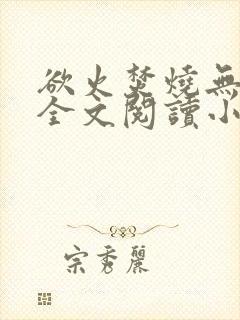 欲火焚燒無
全文閱讀小
宗秀麗